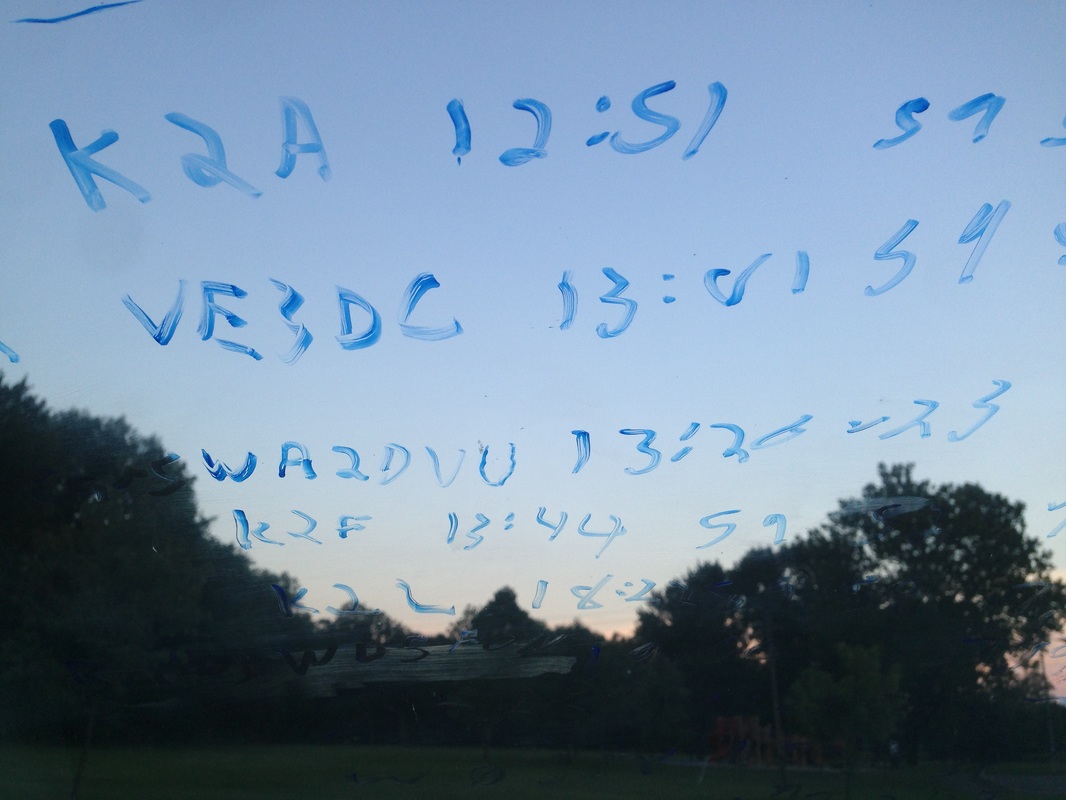 K2A 12:51 59
VE3DC 13:01 59
WA2DVU 13:26 -23
K2F 13:44 59
K2L